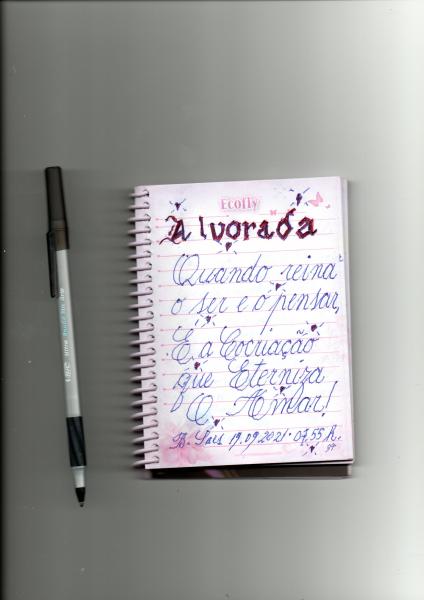 Ecofly
Alvorada
Quando reina
o ser e o pensar,
É a Cocriação
que Eterniza
O Amar!
19.09.2021. 07.55 h.
BIC